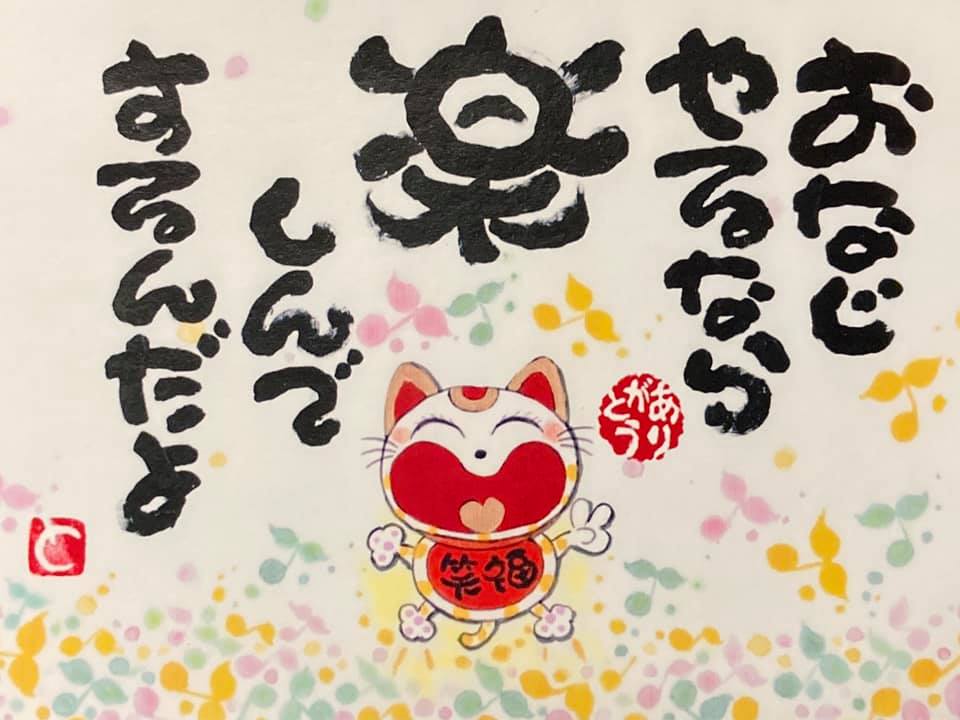 おなじ
やるなら
楽
しんで
するんだよ
ありがとう
笑福